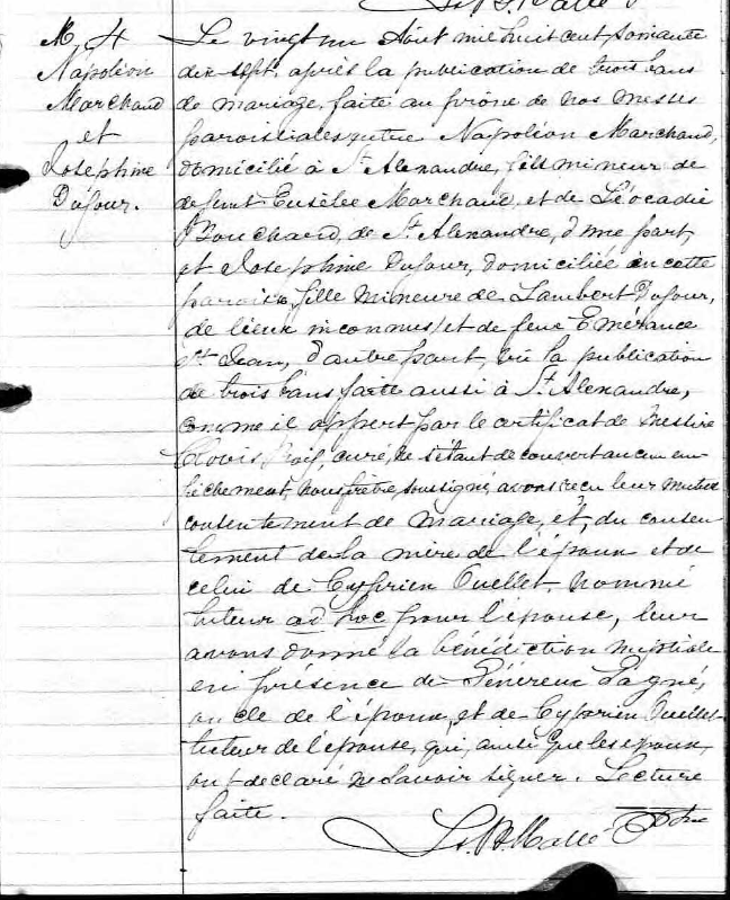 M. 4
Napoléon
Marchand
et
Josephine
Dufour.
Le vingt un Août mil huit cent soixante
dix sept, après la publication de trois bans
de mariage, faite au prône de nos messes
paroissiales entre Napoléon Marchand,
domicilié à St Alexandre, fils mineur de
defunt Eusèbe Marchand, et de Léocadie
Bouchard, de St. Alexandre, d'une part,
et Josephine Dufour, domiciliée en cette
paroisse, fille mineure de Lambert Dufour,
de lieux inconnus, et de feue Emérance
St Jean, d'autre part, vu la publication
de trois bans faite aussi à St. Alexandre,
comme il appert par le certificat de Messire
Clovis Roy, curé, ne s'étant decouvert aucun em-
pêchement, nous prêtre soussigné, avons reçu leur mutuel
consentement de mariage, et, du consen-
tement de la mère de l'époux et de
celui de Cyprien Ouellet, nommé
tuteur ad hoc pour l'épouse, leur
avons donné la bénédiction nuptiale
en présence de Généreux Gagné,
oncle de l'époux, et de Cyprien Ouellet
tuteur de l'épouse, qui, ainsi que les époux,
ont declaré ne savoir signer. Lecture
faite.
Ptre